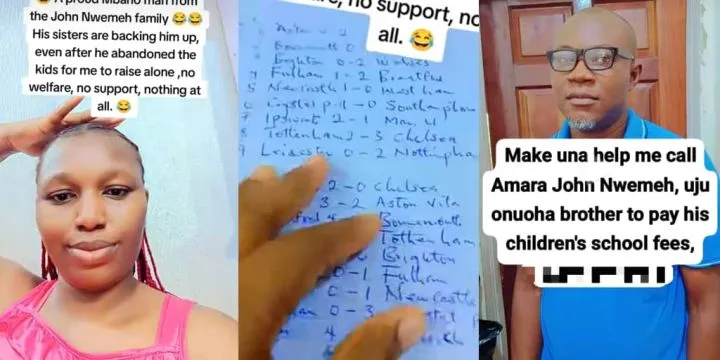 😂 A proud Mbano man from
the John Nwemeh family 😂😂
His sisters are backing him up,
even after he abandoned the
kids for me to raise alone ,no
welfare, no support, nothing at
all. 😂
no support, no
all. 😂
Aston v 2
Bournemouth 0
Brighton 0-2 Wolves
Fulham 1-2 Brentford
Newcastle 1-0 West ham
Crystal p 1-0 Southampton
7 Ipswich 2-1 Man u
8 Tottenham 3-3 Chelsea
9 Leicester 0-2 Nottingham
2-0 Chelsea
3-2 Aston Vila
4 Bournemouth
Tottenham
Brighton
0-1 Fulham
0-1 Newcastle
0-3
4
Make una help me call
Amara John Nwemeh, uju
onuoha brother to pay his
children's school fees,